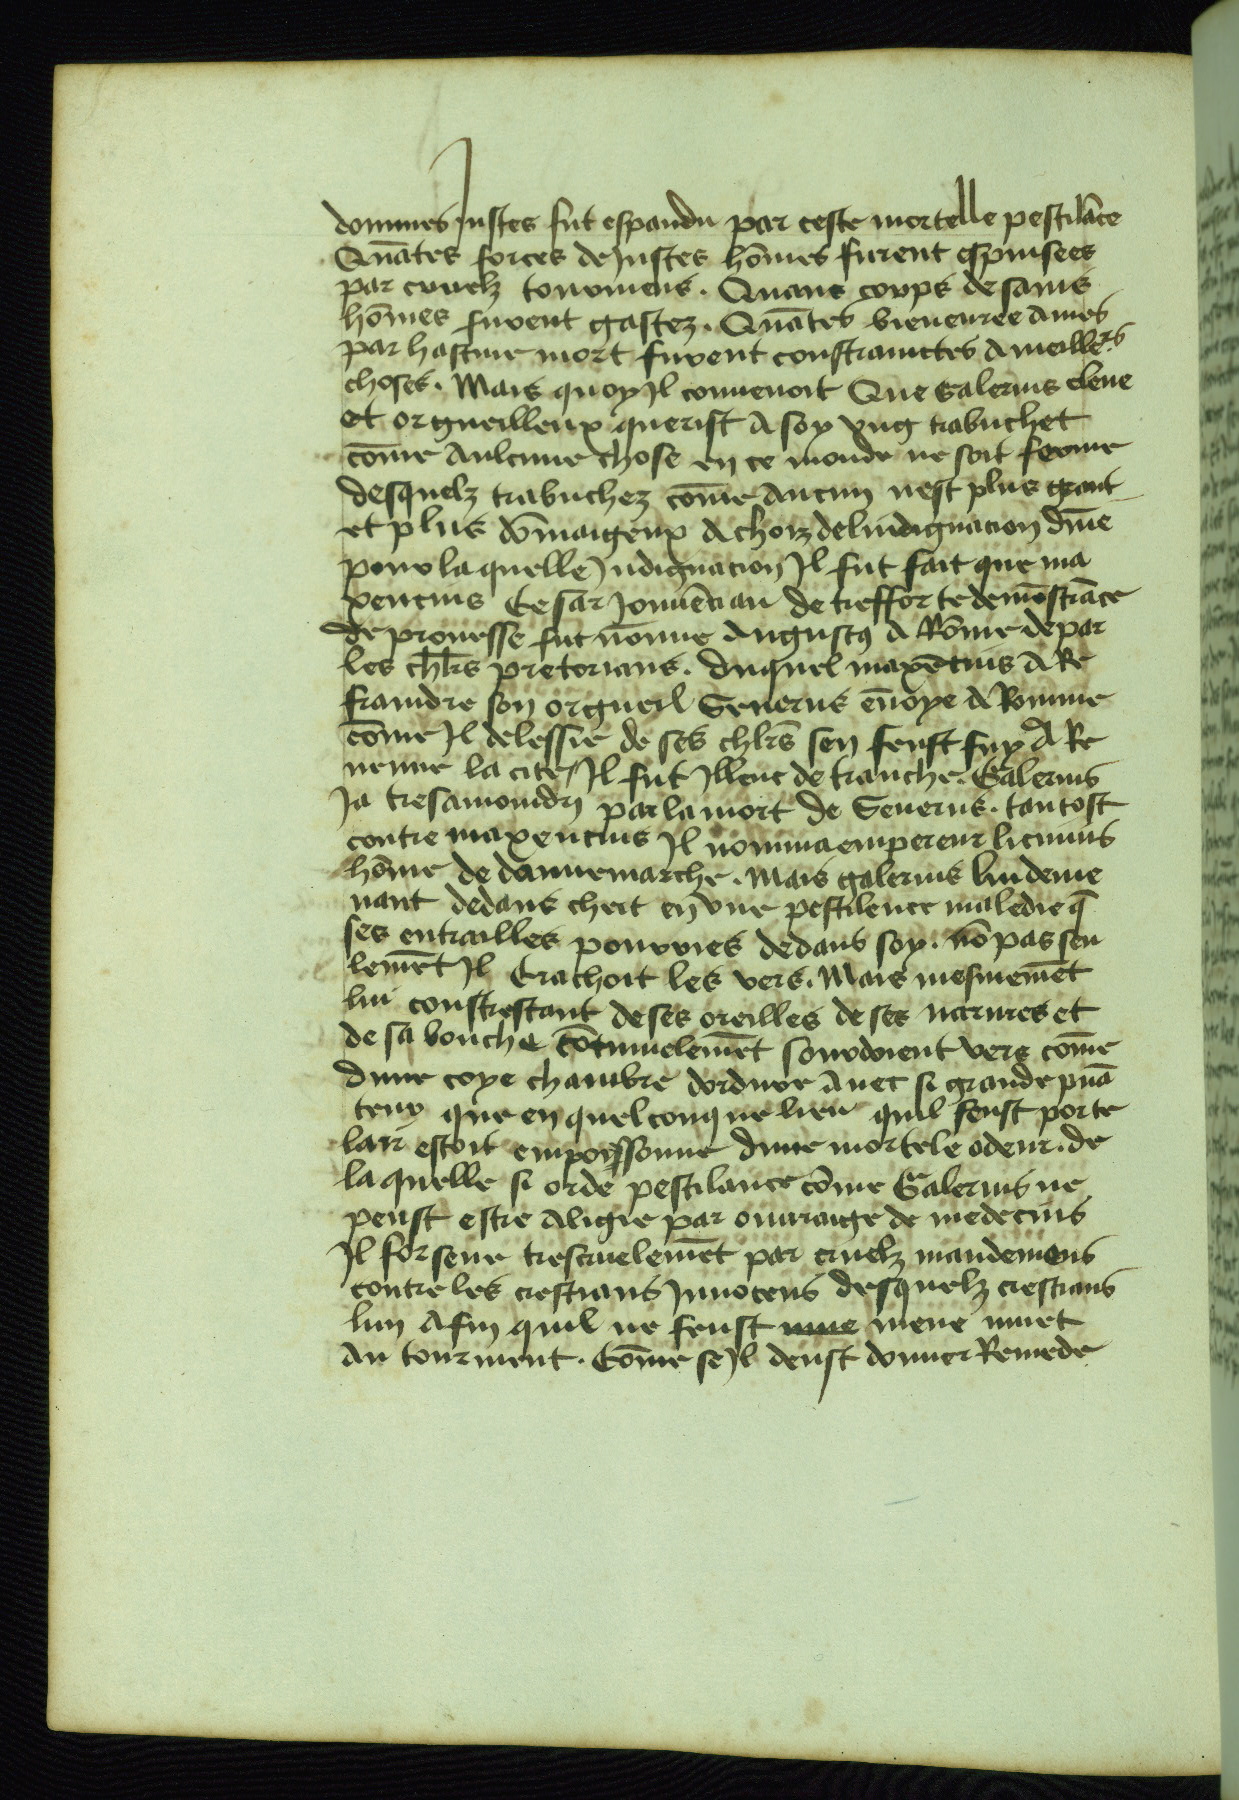 dommes Justes fut espandu par ceste mortelle pestilāce
Quātes forces de Justes hōmes furent espuisees
par cruelz tourmens . Quans corps de sains
hōmes furent gastez . Quātes bieneuree ames
par hastiue mort furent constrainctes a meillers
choses . Mais quoy Il conuenoit Que Galerius eleue
et orgueilleux querist a soy vng trabuchet
cōme aulcune chose en ce monde ne soit ferme
desquelz trabuchez cōme aucun nest plus grant
et plus dōmaigeux de lindignacion diuīe
pour laquelle Indignacion Il fut fait que ma
xencius Cesar de treffort demōstrāce
de prouesse fut nōme Augustus a Rōme de par
les chlrs pretorians . duquel maxēcius a Re
fraindre son orgueil Seuerus ēuoye a Romme
cōme Il delessie de ses chlrs sen feust fuy a Re
uenne la cite / Il fut Illenc detranche . Galerius
Ja tresamoindry par la mort de Seuerus . tantost
contre maxencius Il nomma empereur licinius
hōme de dannemarche . Mais galerius lui deme
nant dedans cheit en vne pestilence maledie q̄
ses entrailles pourries dedans soy . nō pas seu
lemēt Il crachoit les vers . Mais mesmemēt
lui de ses oreilles de ses narines et
de sa bouche cōtinuelemēt sourdoient vers cōme
dune coye chambre dordure auec si grande puā
teur que en quelconque lieu quil feust porte
lair estoit empoissonne dune mortele odeur . de
laquelle si orde pestilance cōme Galerius ne
peust estre aligie par ouuraige de medecins
Il forsene trescruelemēt par cruelz mandemens
contre les crestians Innocens desquelz crestians
lun afin quil ne feust mene muet
au tourment . Cōme se Il deust donner Remede